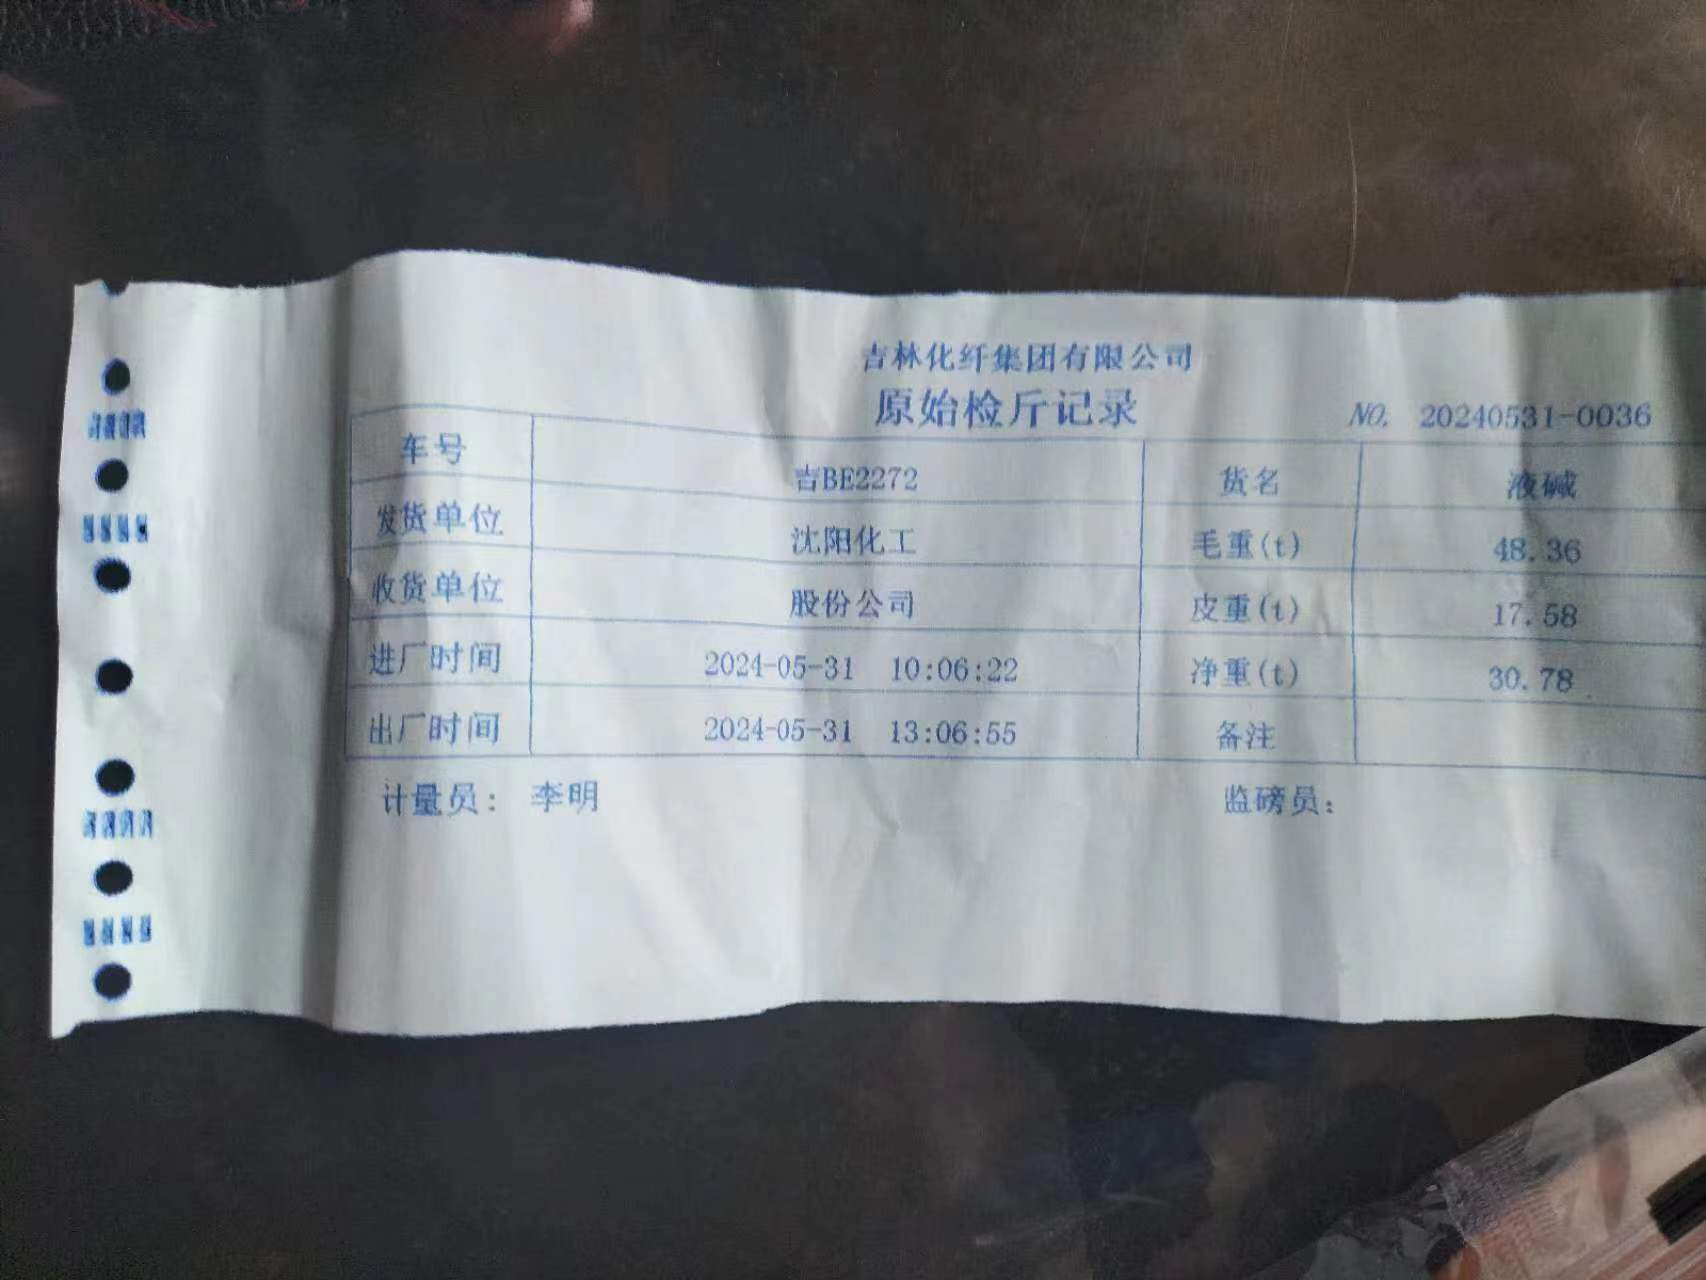 吉林化纤集团有限公司
原始检斤记录
NO. 20240531-0036
车号 吉BE2272 货名 液碱
发货单位 沈阳化工 毛重(t) 48.36
收货单位 股份公司 皮重(t) 17.58
进厂时间 2024-05-31 10:06:22 净重(t) 30.78
出厂时间 2024-05-31 13:06:55 备注
计量员: 李明 监磅员: